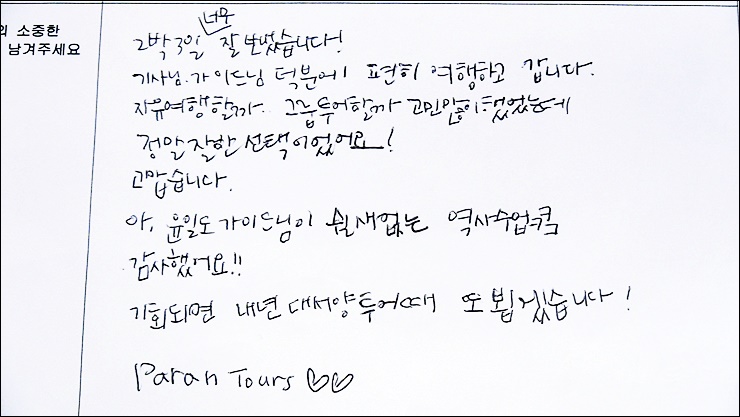 의 소중한
남겨주세요
너무
2박3일 잘 보냈습니다!
기사님. 가이드님 덕분에 편히 여행하고 갑니다.
자유여행할까. 그룹투어할까 고민많이했었는데
정말 잘한 선택이었어요!
고맙습니다.
아, 윤일도 가이드님이 쉴새없는 역사수업ㅋㅋ
감사했어요!!
기회되면 내년 대서양투어때 또 뵙겠습니다!
Paran Tours ♡♡